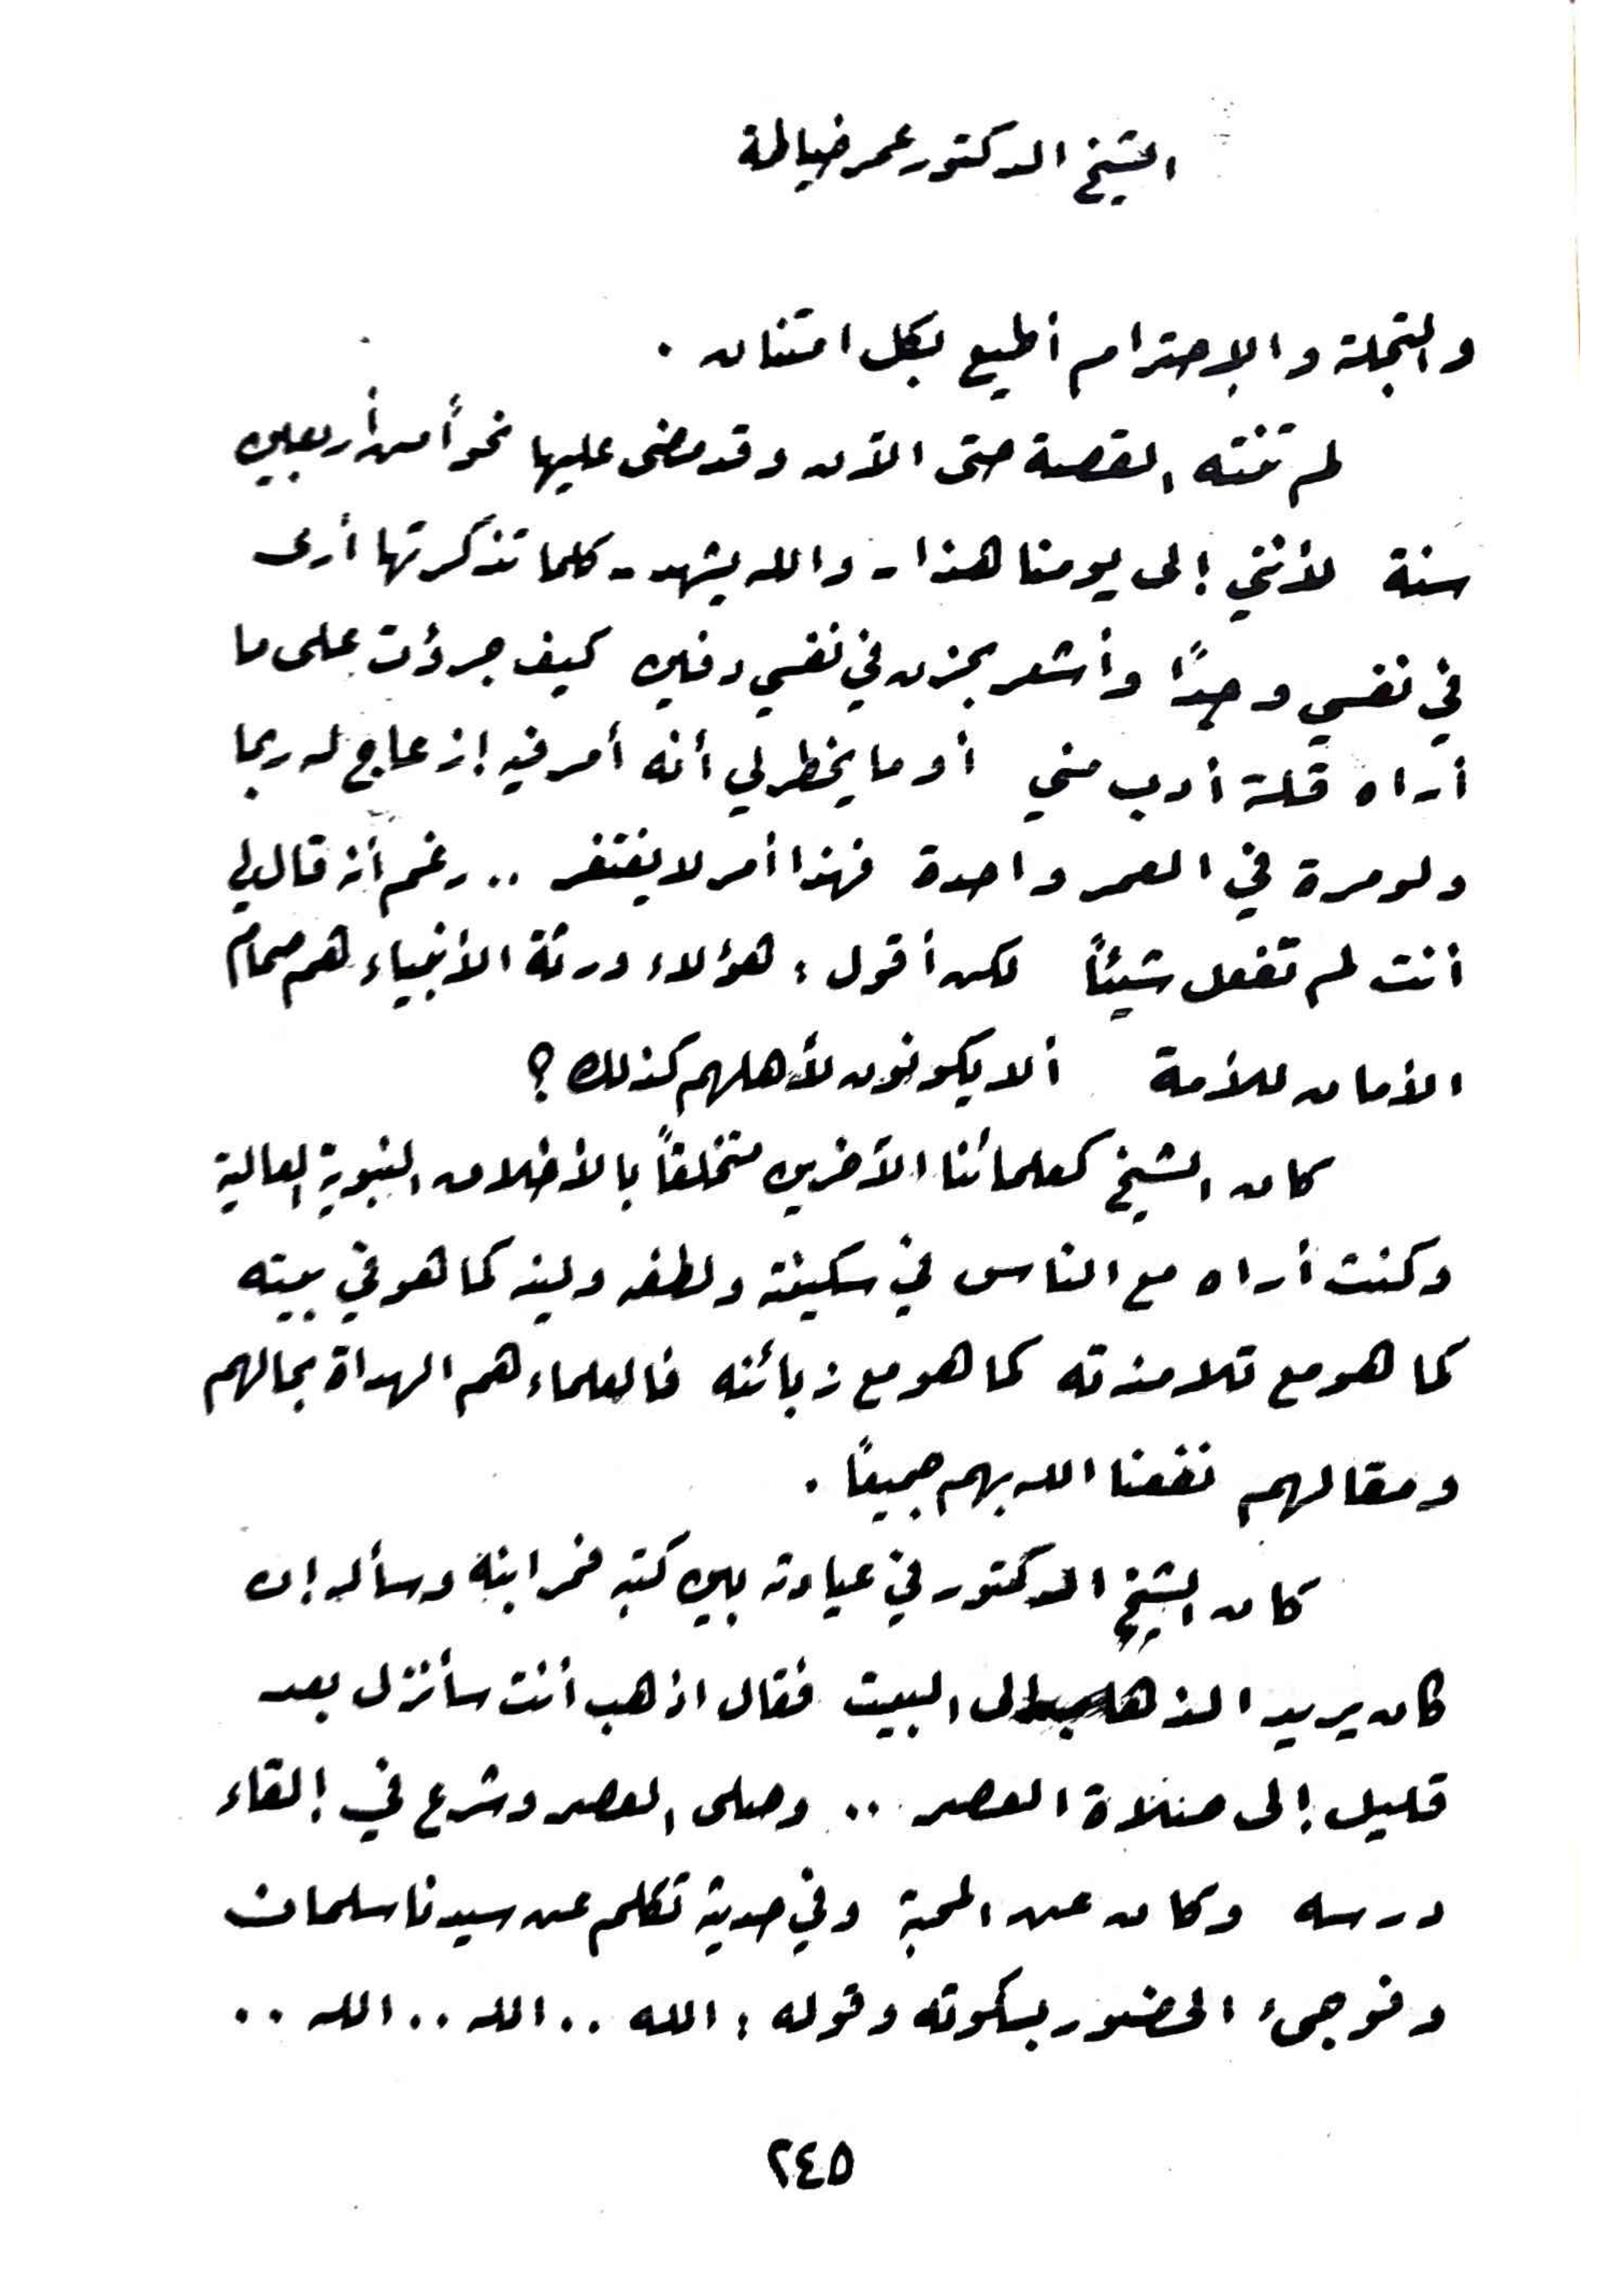 الشيخ الدكتور عمر خياطة
والتجلة والإحترام أطيع بكل امتنان .
لم تنته القصة حتى الآن وقد مضى عليها نحوأ من أربعين
سنة لأنني إلى يومنا هذا - والله يشهد - كلما تذكرتها أرى
في نفسي وجدًا وأشعر بحزن في نفسي دفين كيف جرؤت على ما
أراه قلة أدب مني أو ما يخطر لي أنه أمر فيه إزعاج له ربما
ولو مرة في العمر واحدة فهذا أمر لا يغتفر .. رغم أنه قال لي
أنت لم تفعل شيئاً لكن أقول : هؤلاء ورثة الأنبياء هم صمام
الأمان للأمة ألا يكونون لأهلهم كذلك ؟
كان الشيخ كعلمائنا الآخرين متخلقاً بالأخلاق النبوية العالية
وكنت أراه مع الناس في سكينة ولطف ولين كما هو في بيته
كما هو مع تلامذته كما هو مع زبائنه فالعلماء هم الهداة بحالهم
ومقالهم نفعنا الله بهم جميعاً .
كان الشيخ الدكتور في عيادته بين كتبه فمر ابنه وسأله إن
كان يريد الذهاب إلى البيت فقال اذهب أنت سأنزل بعد
قليل إلى صلاة العصر .. وصلى العصر وشرع في إلقاء
درسه وكان عن المحبة وفي حديثه تكلم عن سيدنا سلمان
وفوجىء الحضور بسكوته وقوله : الله .. الله .. الله ..
٢٤٥